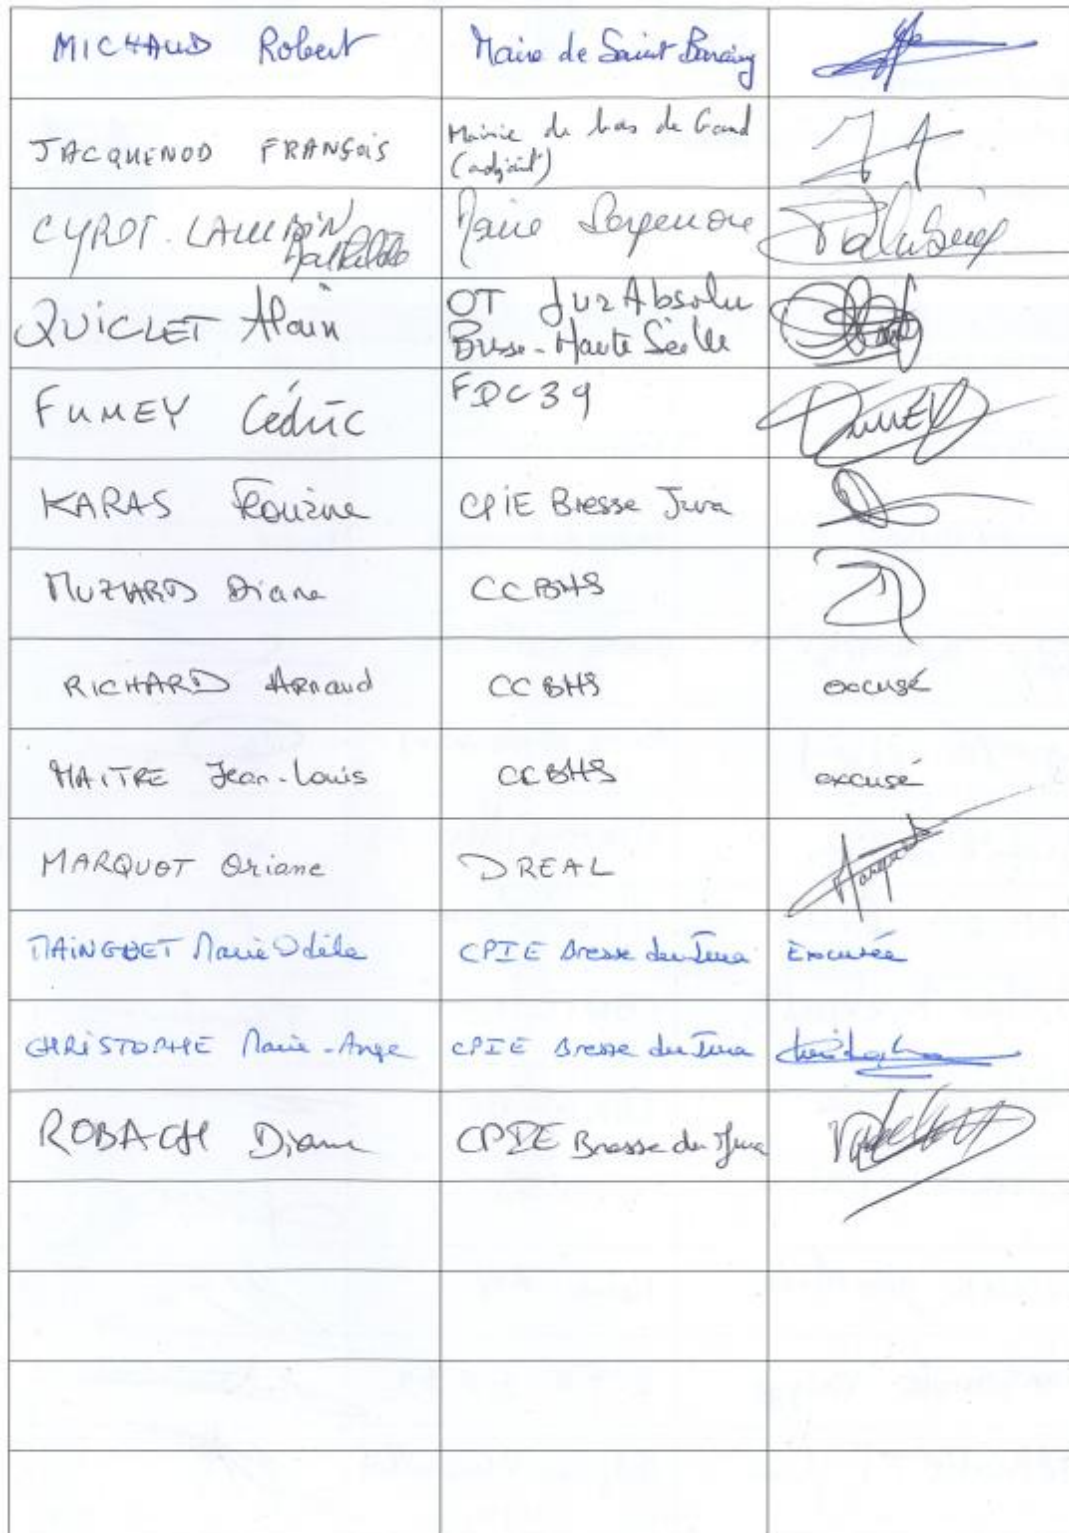 MICHAUD Robert
Maire de Saint Baraing
JACQUENOD FRANÇOIS
Mairie de bas de Gand
(adjoint)
CYROT. LALUBIN
Mathilde
Maire Sergenon
QUICLET Alain
OT Jur Absolu
Bresse-Haute Seille
FUMEY Cédric
FDC39
FUMEY
KARAS
CPIE Bresse Jura
MUZARD Diane
CCBHS
RICHARD Arnaud
CCBHS
excusé
MAITRE Jean-Louis
CCBHS
excusé
MARQUOT Oriane
DREAL
MAINGUET Marie Odile
CPIE Bresse du Jura
Excusée
CHRISTOPHE Marie-Ange
CPIE Bresse du Jura
ROBACH Diane
CPIE Bresse du Jura